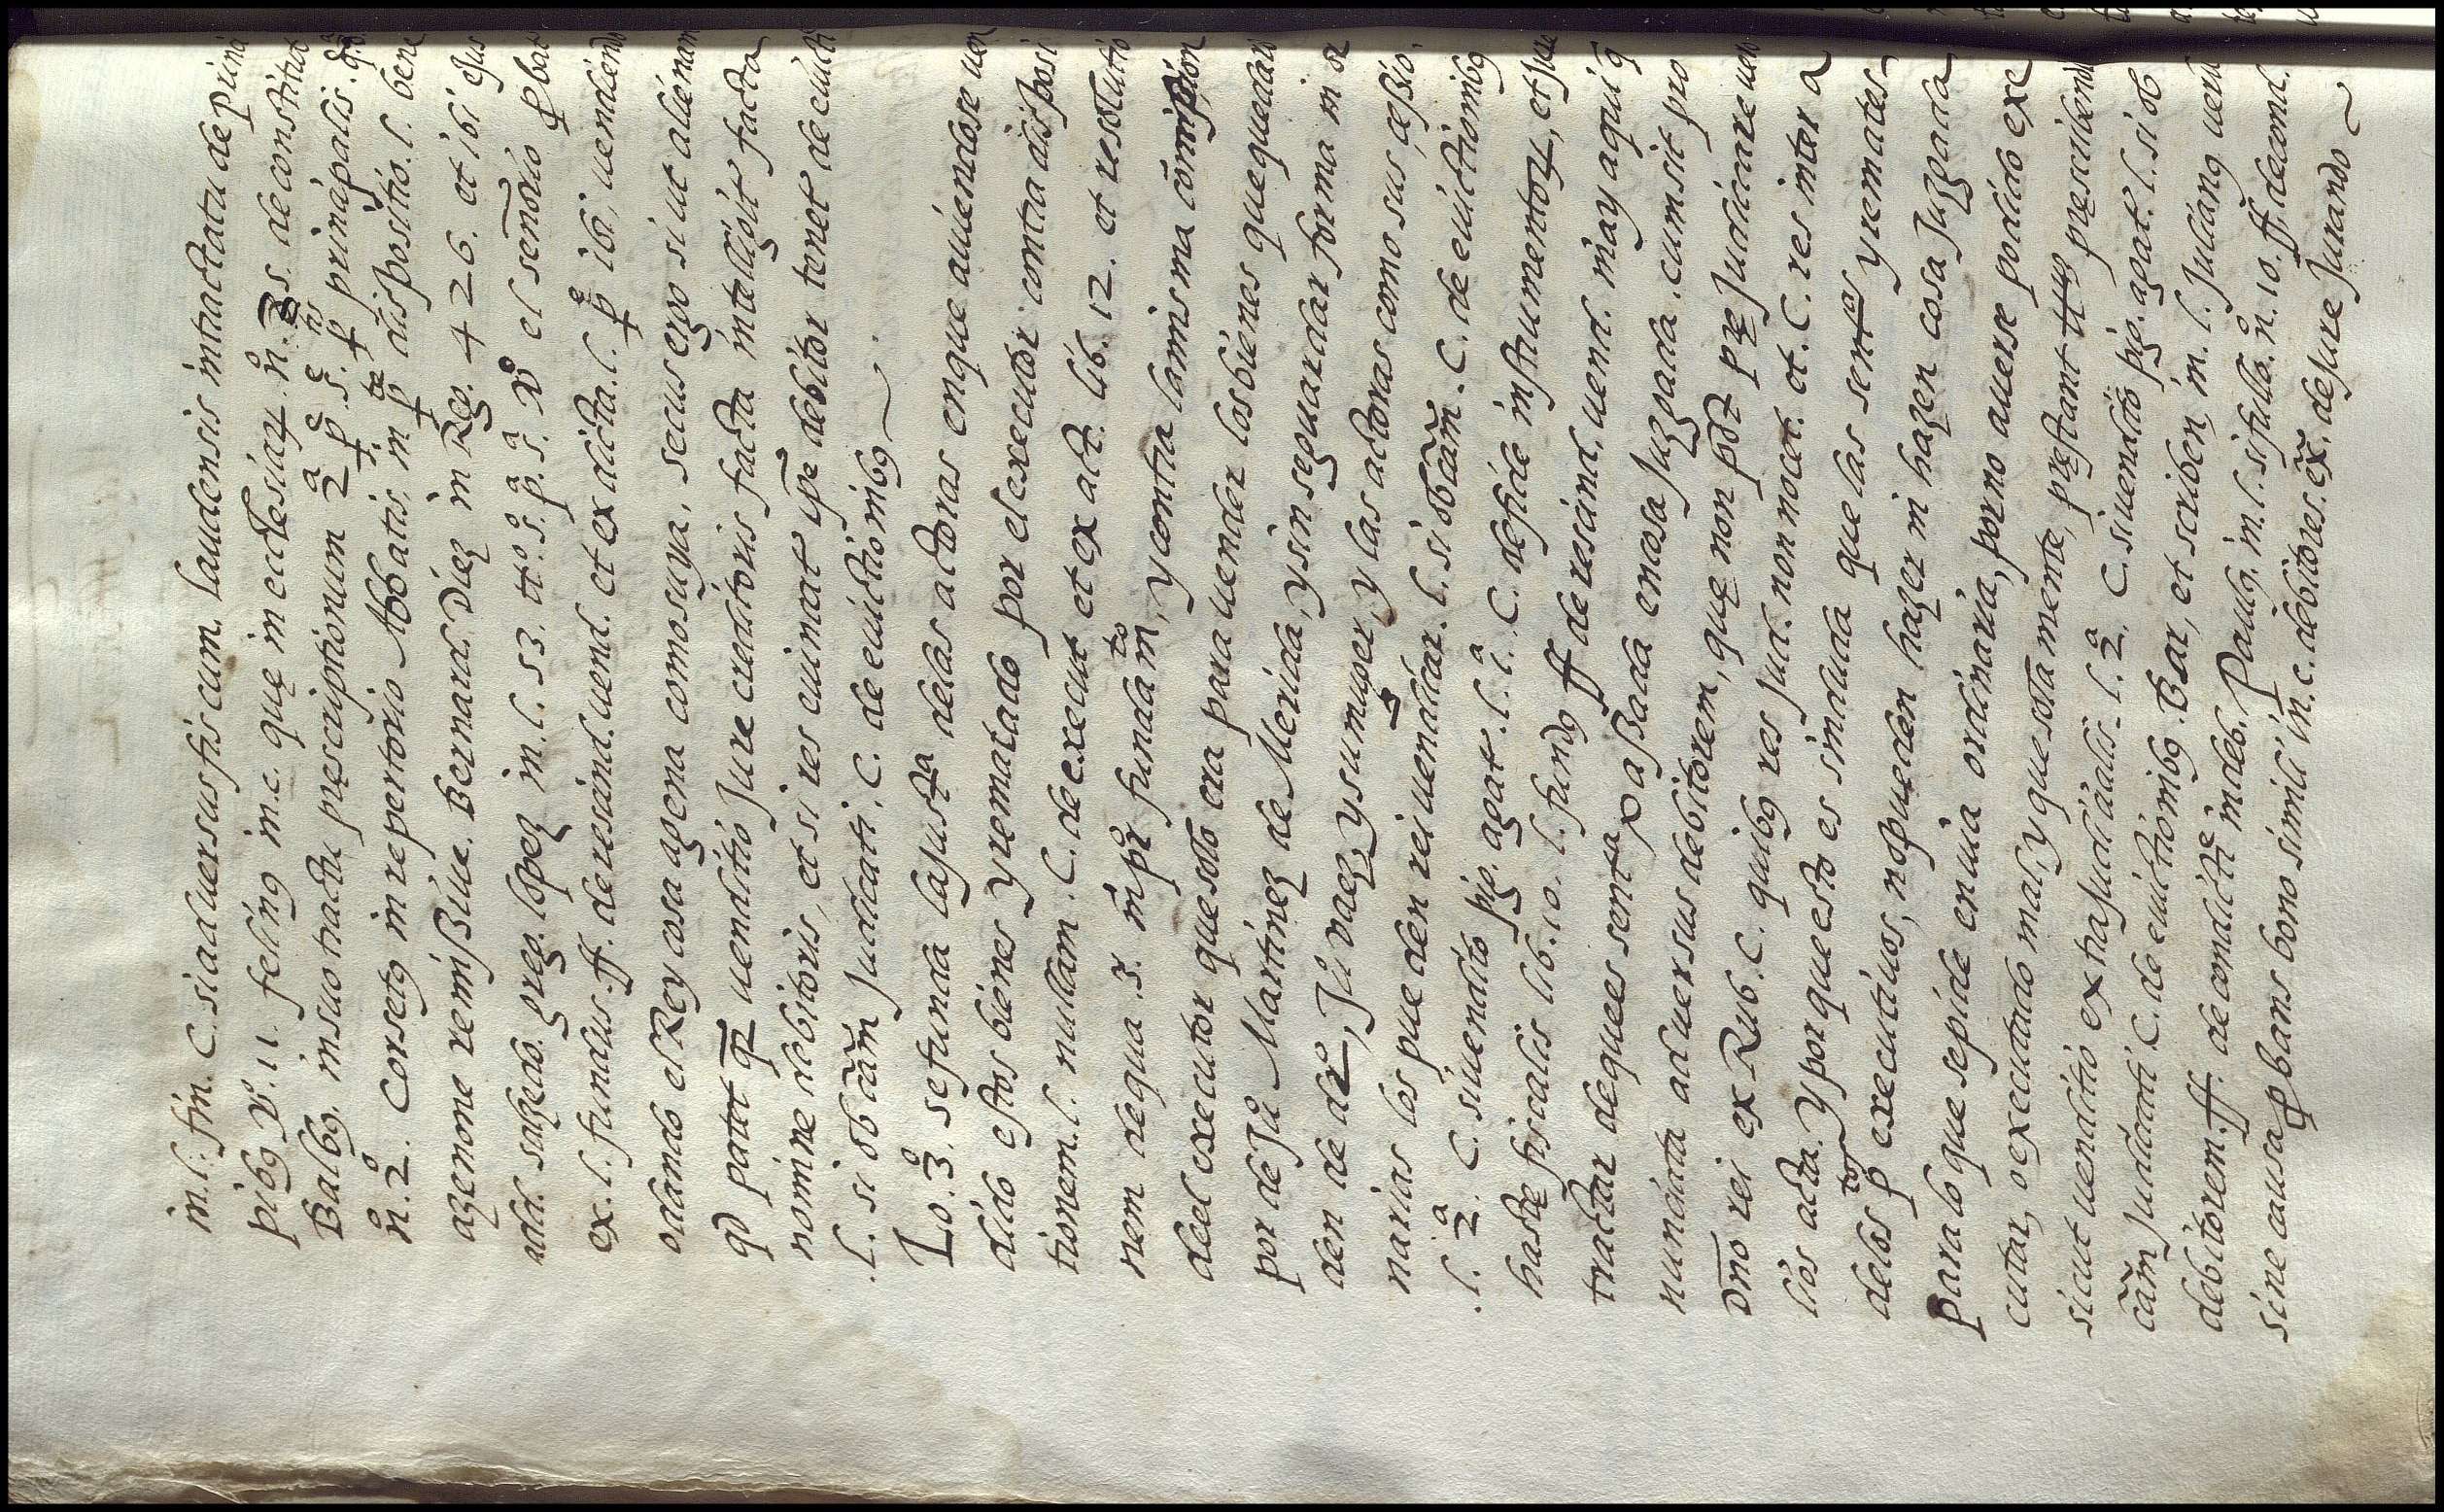 in. l. fin. C. si aduersus fiscum. laudensis in tractatu de princi
pibg Vº. 11. feling in. c. que in ecclesiarz. nº. 25. de constitut
Balbg. in suo tractu pręscriptionum 2ª pe. 5. pe nr principalis. q.
nº. 2º. Corsetg in repertorio Abbatis, in pte dispositio. l. bene
azenone remißiue. Bernard. Diez in Reg. 426. et ibi eius
add. salzedo. greg. lopez in. l. 53. ttº. 5º. pª. 5ª. Vº el señorio ꝓbat
ex. l. fundus. ff. de rescind. uend. et ex dicta. l. pe ibi, uendendo
o dando el Rey cosa agena como suya, secus ergo si ut alienam
qd patet qz uenditio Jure creditoris facta intelligit facta
nomine debitoris, et si res euincat ipe debitor tenet de euicti
.l. si ob cām Judicati. C. de euictionibg
Lo. 3º. se funda la justª delas actoras en que auiendose uen
dido estos bienes y rematado por el executor contra disposi
tionem. l. nullam. C. de execut et ex act. lib. 12. et resoluti
nem de qua .s. in pr fundamto, y contra la misma comission
del executor que solo era para uender los bienes que quedaron
por de Juº Martinez de Merida, y sin seguardar forma ni or
den de drº, Juº vaez, y su muger, y las actoras como sus, cessio.
narias los pueden reiuendicar. l. si ob cām. C. de euictionibg
.l. 2ª. C. si uendito pig. agat. l. 1ª. C. de fide instrumentorz, et Jure
hastę fiscalis lib. 10. l. fundg ff de rescind. uend. may aqui q
tractar de que es sentª paßada en cosa Juzgada. cum sit pro
nunciata aduersus debitorem, quę non pōt pręJudicare uero
Dño rei ex Rub. C. quibg res Jud. non nocet. et. C. res inter a
lios acta. Y porque esto es sin duda que las sentas y remates
delos p tos executiuos, no pueden hazer ni hazen cosa Juzgada
para lo que se pide en uia ordinaria, por no auerse podido exe
cutar, o executado mal, y que solamente, pręstant ttus pręscribendi
sicut uenditio extraJudicialis. l. 2ª. C. si uendito pig. agat. l. si ob
cām Judicati. C. de euictionibg. Bar, et scriben, in. l. Juliang uerū
debitorem. ff. de condicte indeb. Paulg. in. l. si fullo. nº. 10. ff. de cond.
sine causa ꝓbans bono simili in. c. debitores. ex. de Jure Jurando